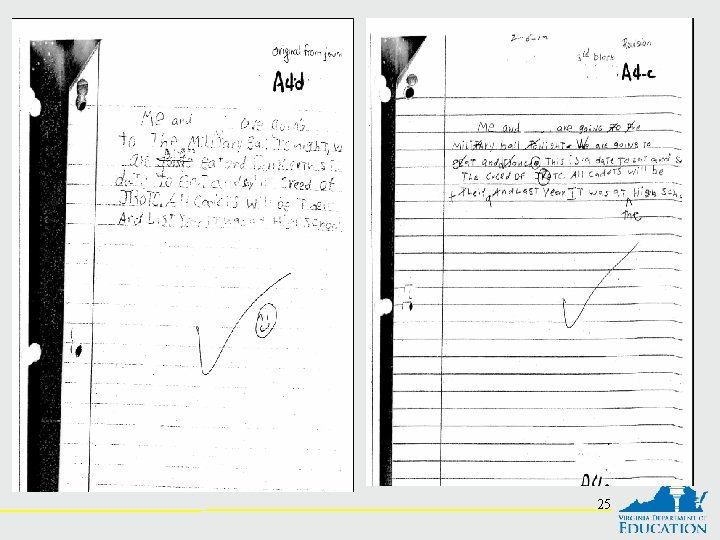 Original from journ
A4d
Me and are going
to The Military Ball Tonight, w
are eat and
date To Eat and Creed of
JROTC. All Cadets Will be There
And Last Year it was at High School
2-6-
Revision
3rd block
A4-c
Me and are going to the
Military ball Tonight. We are going to
eat and Dance. This is a date To eat and s
The Creed OF JROTC. All Cadets will be
+ Their, And Last Year IT was at High Sch.
the
A4
25
VIRGINIA DEPARTMENT OF
EDUCATION